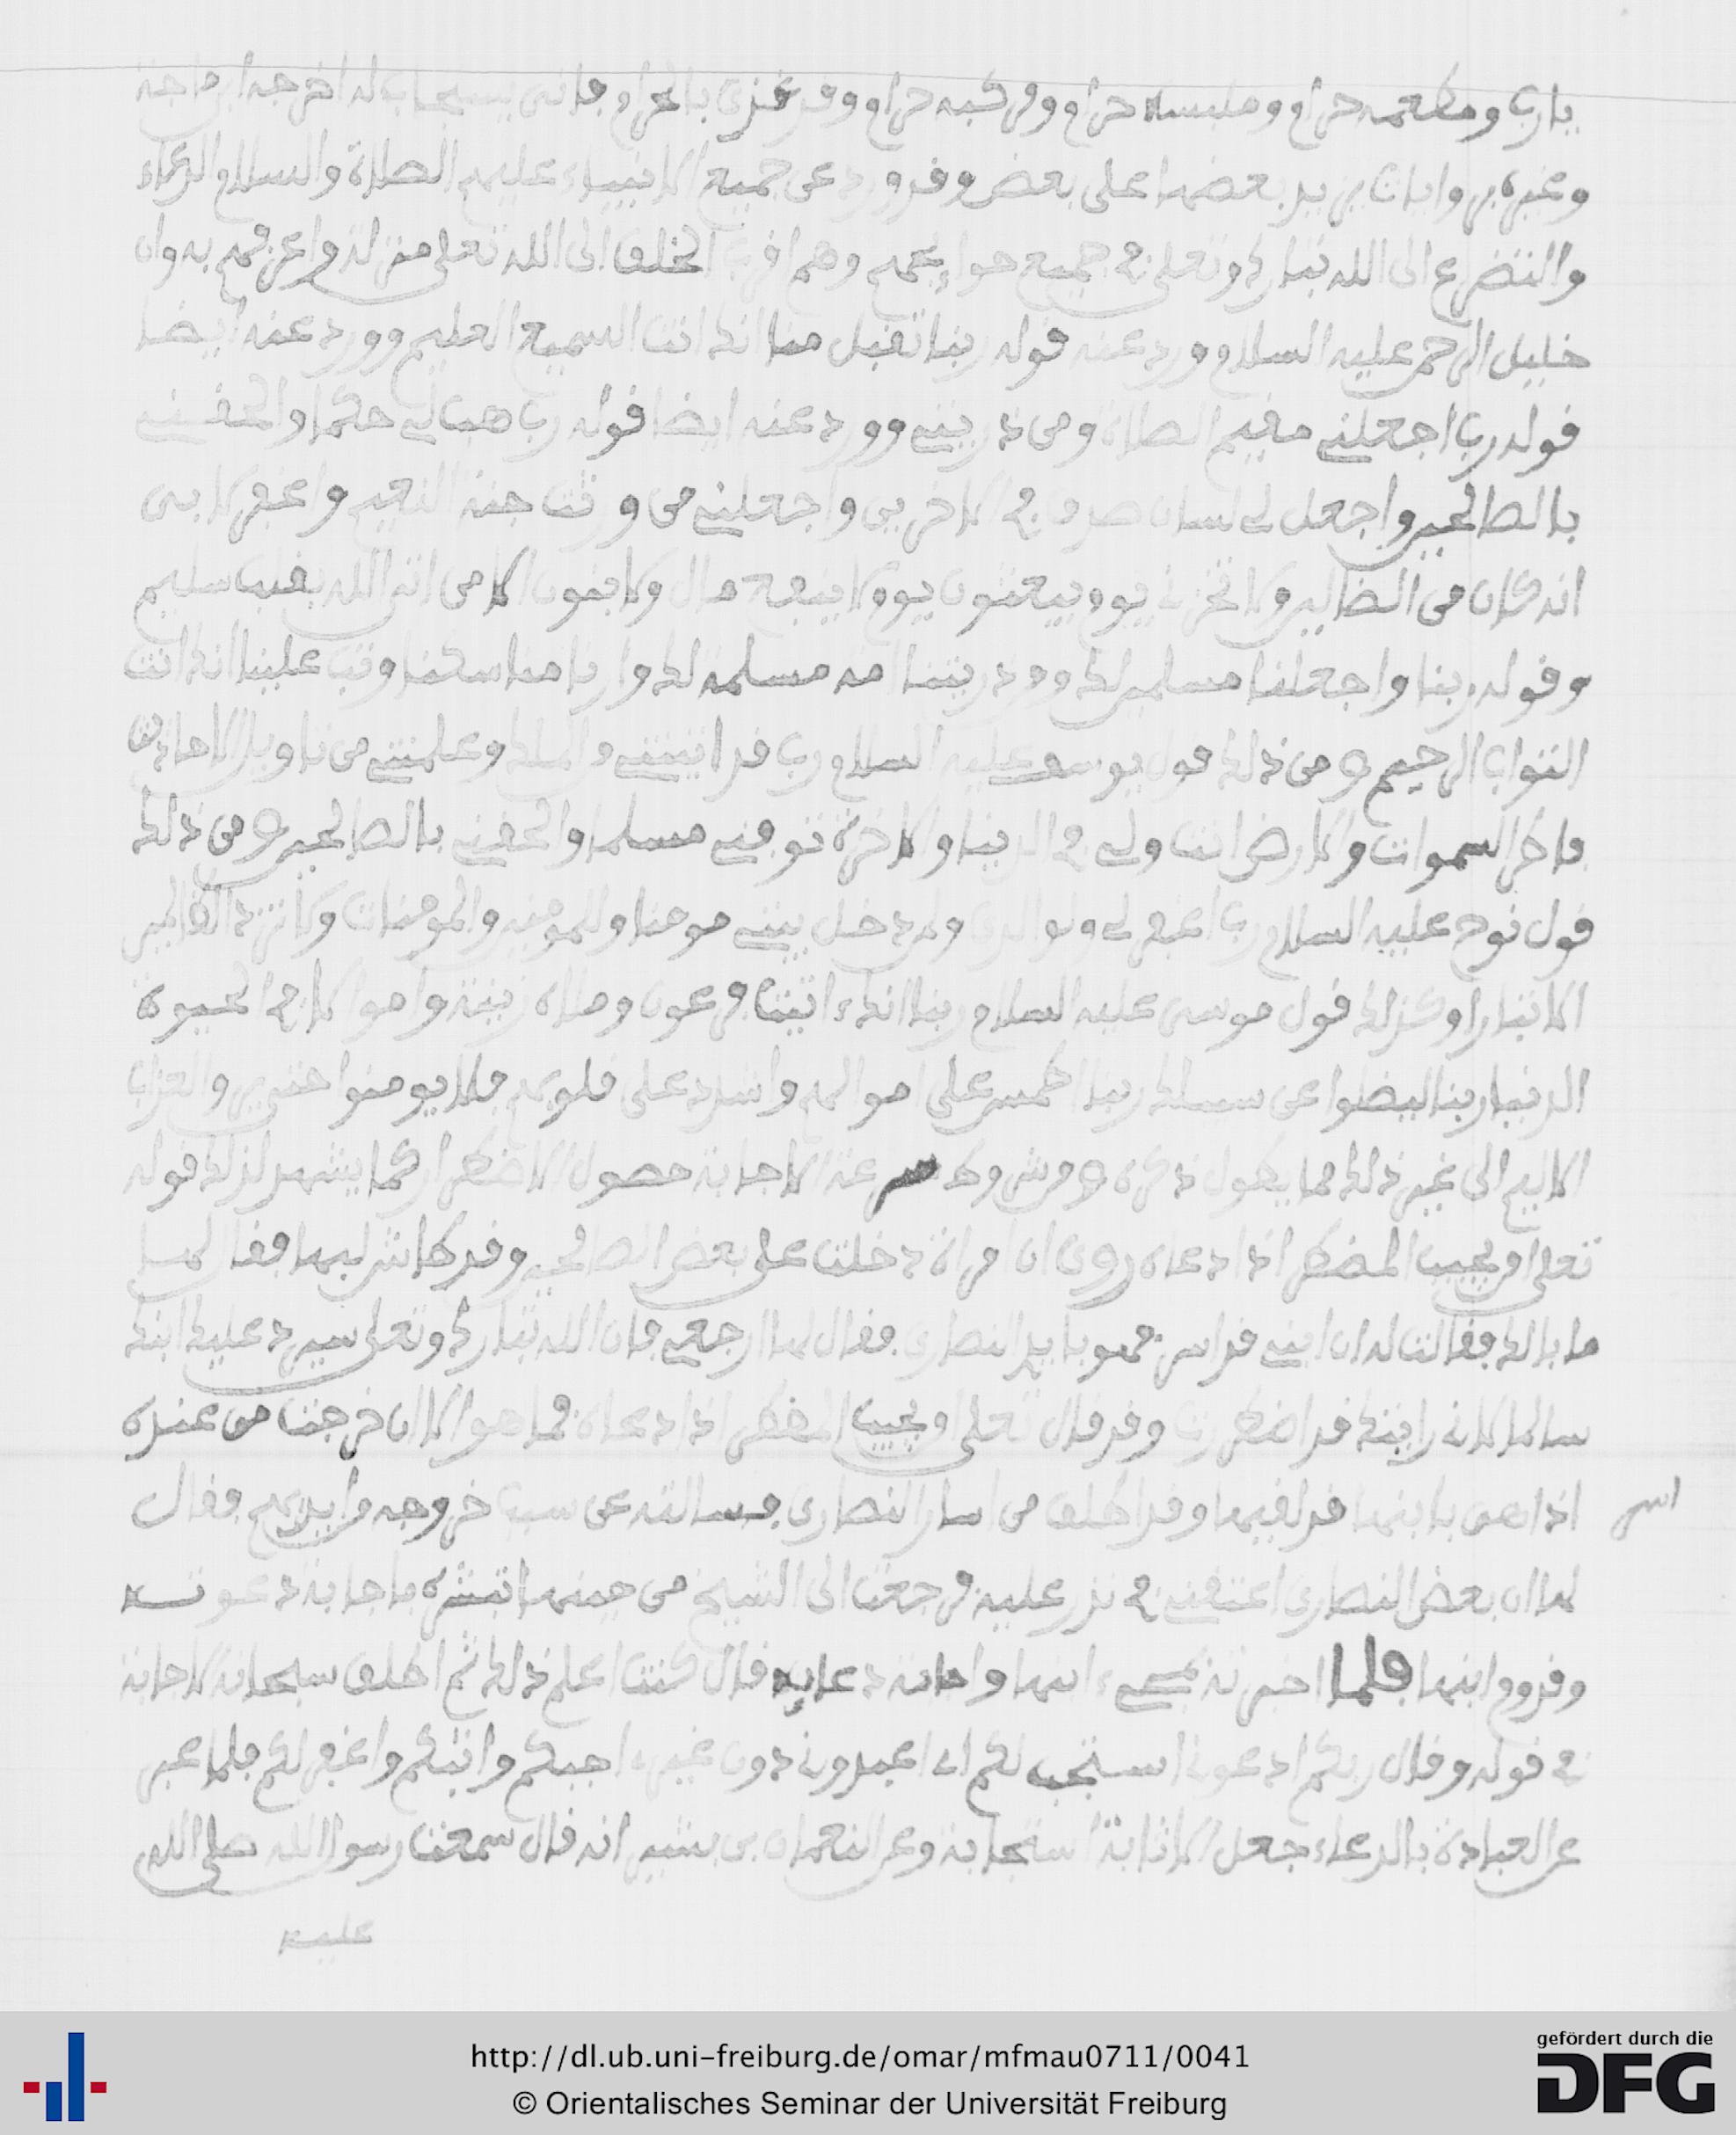 يارب ومطعمه حرام وملبسه حرام ومركبه حرام وقد غذي بالحرام فانى يستجاب له اخرجه ابن ماجة
وغيره بروايات يزيد بعضها على بعض وقد ورد عن جميع الانبياء عليهم الصلاة والسلام الدعاء
والتضرع الى الله تبارك وتعلى في جميع حوايجهم وهم اقرب الخلق الى الله تعلى منزلة واعرفهم به وان
خليل الرحمن عليه السلام ورد عنه قوله ربنا تقبل منا انك انت السميع العليم وورد عنه ايضا
قوله رب اجعلني مقيم الصلاة ومن ذريتي وورد عنه ايضا قوله رب هب لي حكما والحقني
بالصالحين واجعل لي لسان صدق في الاخرين واجعلني من ورثت جنة النعيم واغفر لابي
انه كان من الضالين ولا تخزني يوم يبعثون يوم لا ينفع مال ولا بنون الا من اتى الله بقلب سليم
وقوله ربنا واجعلنا مسلمين لك ومن ذريتنا امة مسلمة لك وارنا مناسكنا وتب علينا انك انت
التواب الرحيم ومن ذلك قول يوسف عليه السلام رب قد اتيتني من الملك وعلمتني من تاويل الاحاديث
فاطر السموات والارض انت وليي في الدنيا والاخرة توفني مسلما والحقني بالصالحين ومن ذلك
قول نوح عليه السلام رب اغفر لي ولوالدي ولمن دخل بيتي مومنا وللمومنين والمومنات ولا تزد الظالمين
الا تبارا وكذلك قول موسى عليه السلام ربنا انك ءاتيت فرعون وملاه زينة واموالا في الحيوة
الدنيا ربنا ليضلوا عن سبيلك ربنا اطمس على اموالهم واشدد على قلوبهم فلا يومنوا حتى يروا العذاب
الاليم الى غير ذلك مما يطول ذكره ومن شروط سرعة الاجابة حصول الاضطرار كما يشهد لذلك قوله
تعلى امن يجيب المضطر اذا دعاه روي ان امراة دخلت على بعض الصالحين وقد كانت لبيها فقال لها
ما بالك فقالت له ان ابني قد اسر فهو بايد النصارى فقال لها ارجعي فان الله تبارك وتعلى سيرد عليك ابنك
سالما لاني رايتك قد اضطررت وقد قال تعلى امن يجيب المضطر اذا دعاه فما هو الا ان خرجت من عنده
اذا هي بابنها قد لقيها وقد اطلق من اسار النصارى فسالته عن سبب خروجه من ايديهم فقال
اسر
لها ان بعض النصارى اعتقني في نذر عليه فرجعت الى الشيخ من حينها تبشره باجابة دعوته
وقدوم ابنها فلما اخبرته بمجيء ابنها واجابة دعايه قال كنت اعلم ذلك ثم اطلق سبحانه الاجابة
في قوله وقال ربكم ادعوني استجب لكم اي اعبدوني دون غيري اجبكم واثبكم واغفر لكم فلما عبر
عن العبادة بالدعاء جعل الاثابة استجابة وعن النعمان بن بشير انه قال سمعت رسول الله صلى الله
عليه
http://dl.ub.uni-freiburg.de/omar/mfmau0711/0041
© Orientalisches Seminar der Universität Freiburg
gefördert durch die
DFG